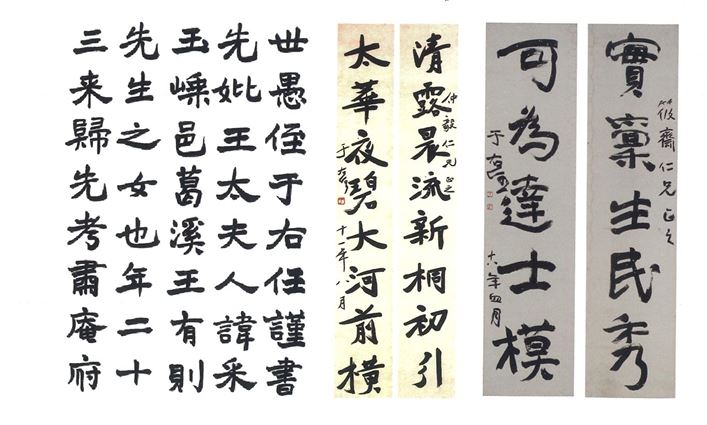 實稟生民秀
筱齋仁兄正之
可為達士模
于右任
年四月
清露晨流新桐初引
仲毅仁兄正之
太華夜碧大河前橫
于右任
十一年八月
世愚侄于右任謹書
先妣王太夫人諱采
玉嵊邑葛溪王有則
先生之女也年二十
三来歸先考肅庵府